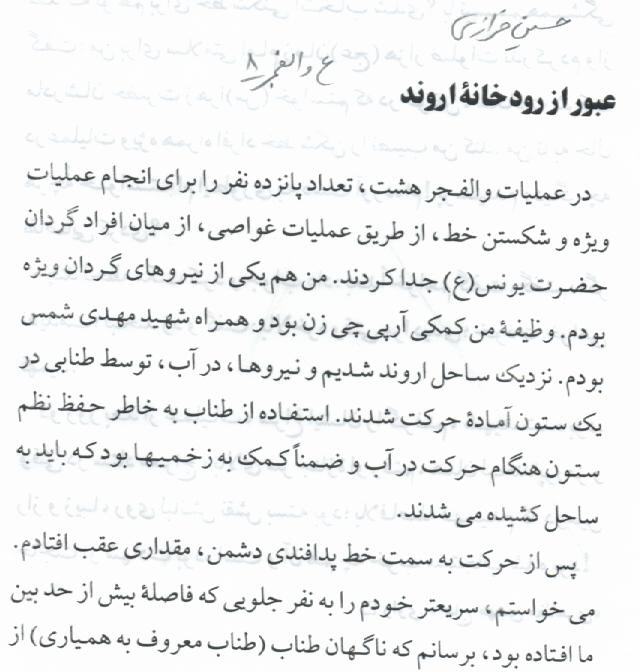 حسین خرازی
ع والفجر ۸
عبور از رودخانهٔ اروند
در عملیات والفـجر هشت، تعداد پانزده نفر را برای انجام عملیات
ویژه و شکستن خط، از طریق عملیات غواصی، از میان افراد گردان
حضرت یونس(ع) جدا کردند. من هم یکی از نیروهای گردان ویژه
بودم. وظیفهٔ من کمکی آرپی چی زن بود و همراه شهید مهدی شمس
بودم. نزدیک ساحل اروند شدیم و نیروها، در آب، توسط طنابی در
یک ستون آمادهٔ حرکت شدند. استفاده از طناب به خاطر حفظ نظم
ستون هنگام حرکت در آب و ضمناً کمک به زخمیها بود که باید به
ساحل کشیده می شدند.
پس از حرکت به سمت خط پدافندی دشمن، مقداری عقب افتادم.
می خواستم، سریعتر خودم را به نفر جلویی که فاصلهٔ بیش از حد بین
ما افتاده بود، برسانم که ناگهان طناب (طناب معروف به همیاری) از